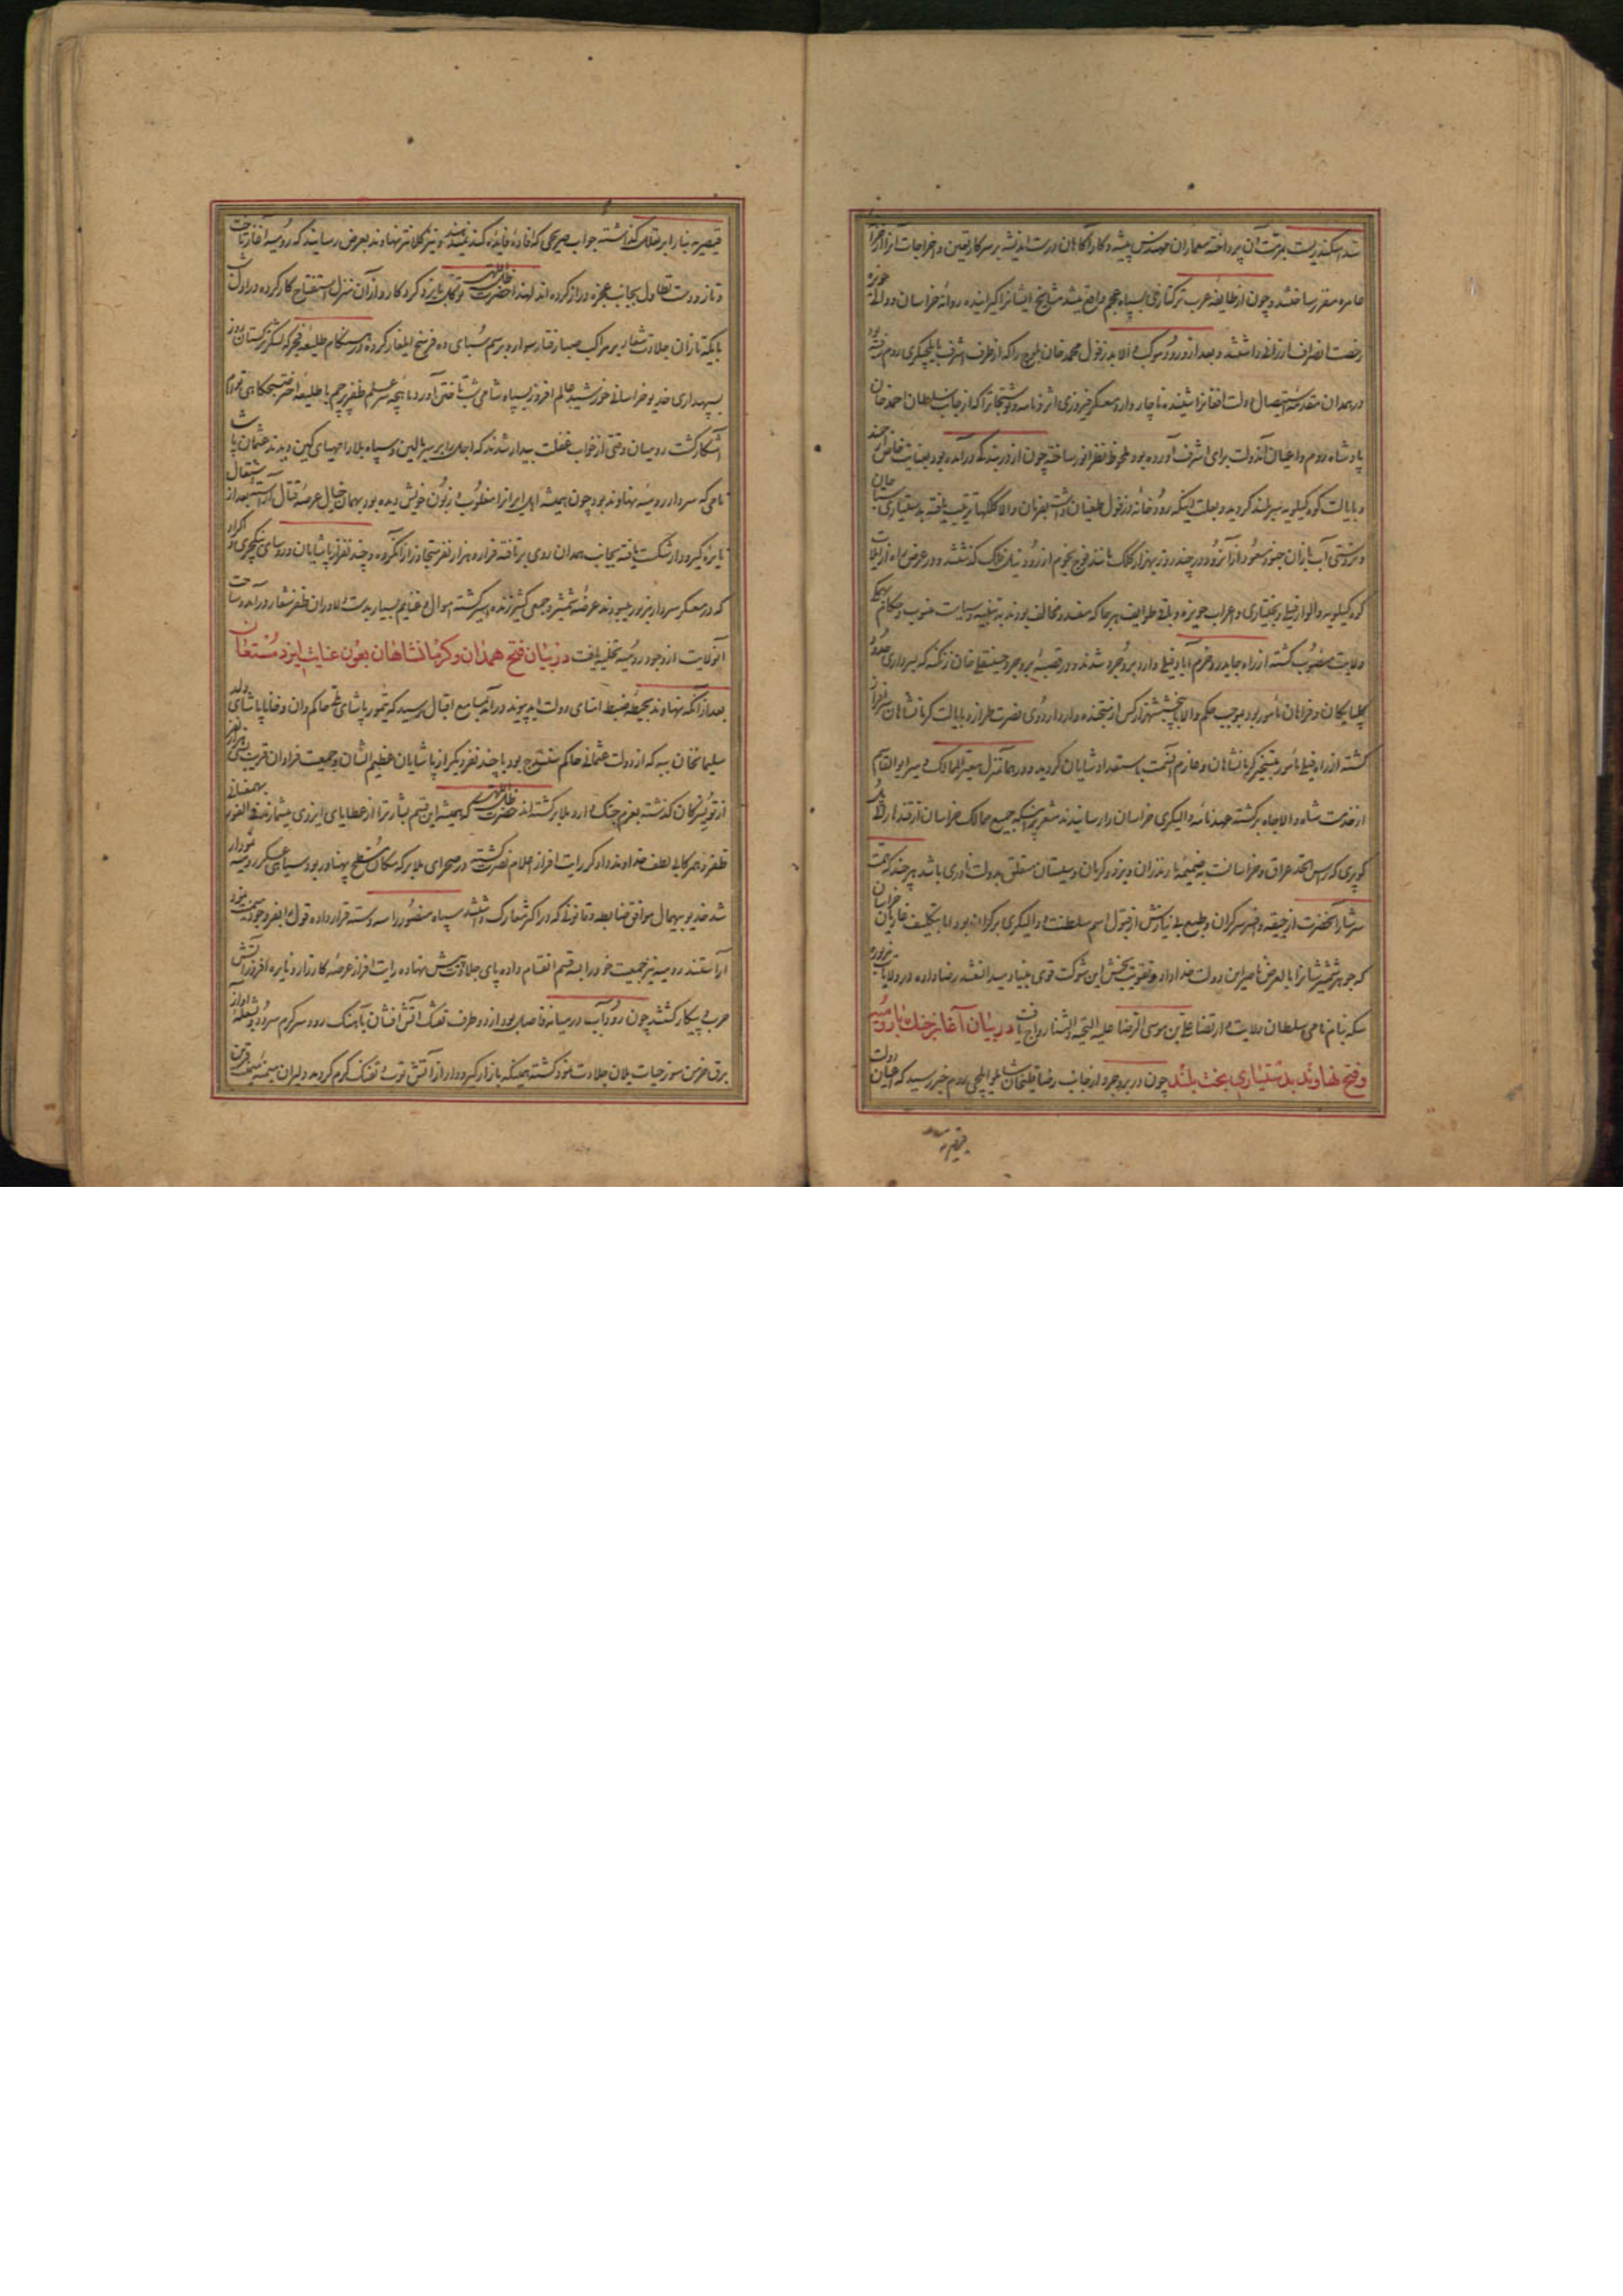 شد اسکندر بست بمرمت آن پرداخته معماران مهندس پیشه و کارآگاهان درست اندیشه بر سر کار تعیین و اخراجات آنرا از
عامره مقرر ساختند و چون از طایفه عرب ترکتازی بسپاه عجم واقع میشد مشایخ ایشانرا کوچانیده روانه خراسان و والی حویزه
رخصت انصراف ارزانی داشتند و بعد از ورود موکب والا بدزفول محمد خان بلوچ را که از طرف اشرف بایلچیگری روم رفته بود
در همدان مقدمه استیصال دولت افغانرا شنیده ناچار وارد معسکر فیروزی اثر و نامه و نوشتجاتی را که از جانب سلطان احمد خان
پادشاه روم و اعیان آندولت برای اشرف آورده بود ملحوظ نظر انور ساخته چون از در بندگی درآمده بود بعنایت خاص
و بایالت کوه کیلویه سربلند گردید و بعلت اینکه رودخانه دزفول طغیان داشت بفرمان والا کلکها ترتیب یافته بدستیاری
و کشتی آب بازان جنود مسعود از آنرود در چند روز بهزار کلک مانند فوج نجوم از رود نیل فلک گذشتند و در عرض راه از ایلات
کوه کیلویه و الوار فیلی و بختیاری و اعراب حویزه و باقی طوایف هرجا که مفسد و مخالف بودند به تنبیه و سیاست منسوب و حکام بهر
ولایت منصوب گشته از راه جایدر و خرم آباد فیلی وارد بروجرد شدند و در قصبه بروجرد حسینقلی خان زنگنه که بسرداری حدود
گلپایگان و خراهان مامور بود بموجب حکم والا با پنجشش هزار کس از متجنده وارد اردوی نصرت طراز و بایالت کرمانشاهان سرافراز
گشته از راه فیلی مامور بتسخیر کرمانشاهان و عازم آنسمت باستعداد شایان گردید و در همانمنزل معیر الممالک و میر ابوالقاسم
از خدمت شاه والاجاه برگشته عهدنامه و الیکری خراسان را رسانیدند مشعر بر اینکه جمیع ممالک خراسان از قندهار الی پل
کوپری که راس الحد عراق و خراسانست بضمیمه مازندران و یزد و کرمان و سیستان متعلق بدولت نادری باشد هرچند که همت
سرشار آنحضرت از جیقه و افسر سرگران و طبع بی نیازش از قبول اسم سلطنت و الیکری بر کران بود اما بتکلیف غازیان خراسان
که جوهر شمشیرشان با لعرض ناصر این دولت خداداد و تقویت بخش این شوکت قوی بنیاد میدانستند رضا داده در ولایات مزبوره
سکه بنام نامی سلطان ولایت ارتضا علی بن موسی الرضا علیه التحیة والثنا رواج یافت در بیان آغاز جنک با رومیه
و فتح نهاوند بدستیاری بخت بلند چون در بروجرد از جانب رضا قلیخان شاملو ایلچی روم خبر رسید که اعیان دولت
قیصریه
قیصریه بنا را بر تغافل گذاشته جواب صریحی که افاده فایده کند نمیدهند و نیز کلانتر نهاوند بعرض رسانید که رومیه آغاز تاخت
و تاز و دست تطاول بجانب عجزه دراز کرده اند لهذا حضرت ظل اللهی توکل بایزد کردکار و از آن منزل استفتاح کار کرده در اول شب
با یکه تازان جلادت شعار بر مراکب صبا رفتار سوار و برسم سبای ده فرسخ ایلغار کرده در هنگام طلیعه فجر که لشکر ترکستان روز
بسپهداری خدیو خراسانی خورشید عالم افروز بسپاه شامی شب تاختن آورد ماهچه سر علم ظفر پرچم با طلیعه اختر صبحگاهی توام
آشکار گشت رومیان وقتی از خواب غفلت بیدار شدند که اجل را بر سر بالین و سپاه بلا را مهیای کمین دیدند عثمان پاشا
نامی که سردار رومیه نهاوند بود چون همیشه اهل ایران را مغلوب و زبون خویش دیده بود بهمان خیال عرصه قتال آراست بعد از اشتعال
نایره گیر و دار شکست یافته بجانب همدان روی برتافته قرار ده هزار نفر متجاوز از آنگروه و چند نفر از پاشایان و روسای ینگچری و اکراد
که در معسکر سردار مزبور میبودند عرضه شمشیر و جمعی کثیر زنده اسیر گشته اموال و غنایم بسیار بدست دلاوران ظفر شعار درآمد و ساحت
آنولایت از وجود رومیه تخلیه یافت در بیان فتح همدان و کرمانشاهان بعون عنایت ایزد مستعان
بعد از آنکه نهاوند بحیطه ضبط امنای دولت ابد پیوند درآمد بمسامع اقبال رسید که تیمور پاشای ملی حاکم وان و خانا پاشای ولد
سلیمانخان ببه که از دولت عثمانی حاکم سنندج بود با چند نفر دیگر از پاشایان عظیم الشان و جمعیت فراوان قریب سی هزار نفر
از توسرکان گذشته بعزم جنک وارد ملایر گشته اند حضرت ظل اللهی که همیشه این قسم بشارترا از عطایای ایزدی میشمارند فی الفور بهمعنانی
ظفر و همرکابی لطف خداوند دادگر رایت افراز اعلام نصرت گشته در صحرای ملایر که مکان مسطح پهناور بود سیاهی عسکر رومیه نمودار
شد خدیو بیهمال موافق ضابطه و قانونی که در اکثر معارک داشتند سپاه منصور را سه دسته قرار داده قول را بفر وجود همت خود
آراستند رومیه نیز جمعیت خود را بسه قسم انقسام داده پای جلادت پیش نهاده رایت افراز عرصه کارزار و نایره افروز آتش
حرب و پیکار گشتند چون رود آب در میانه فاصله بود از دو طرف تفنک آتش افشان بآهنک رود سرگرم سرود و شعله آواز
برق خرمن سوز حیات یلان جلادت نمود گشته همینکه بازار گیر و دار از آتش توپ و تفنک گرم گردید دلیران میمنه میمنت قرین